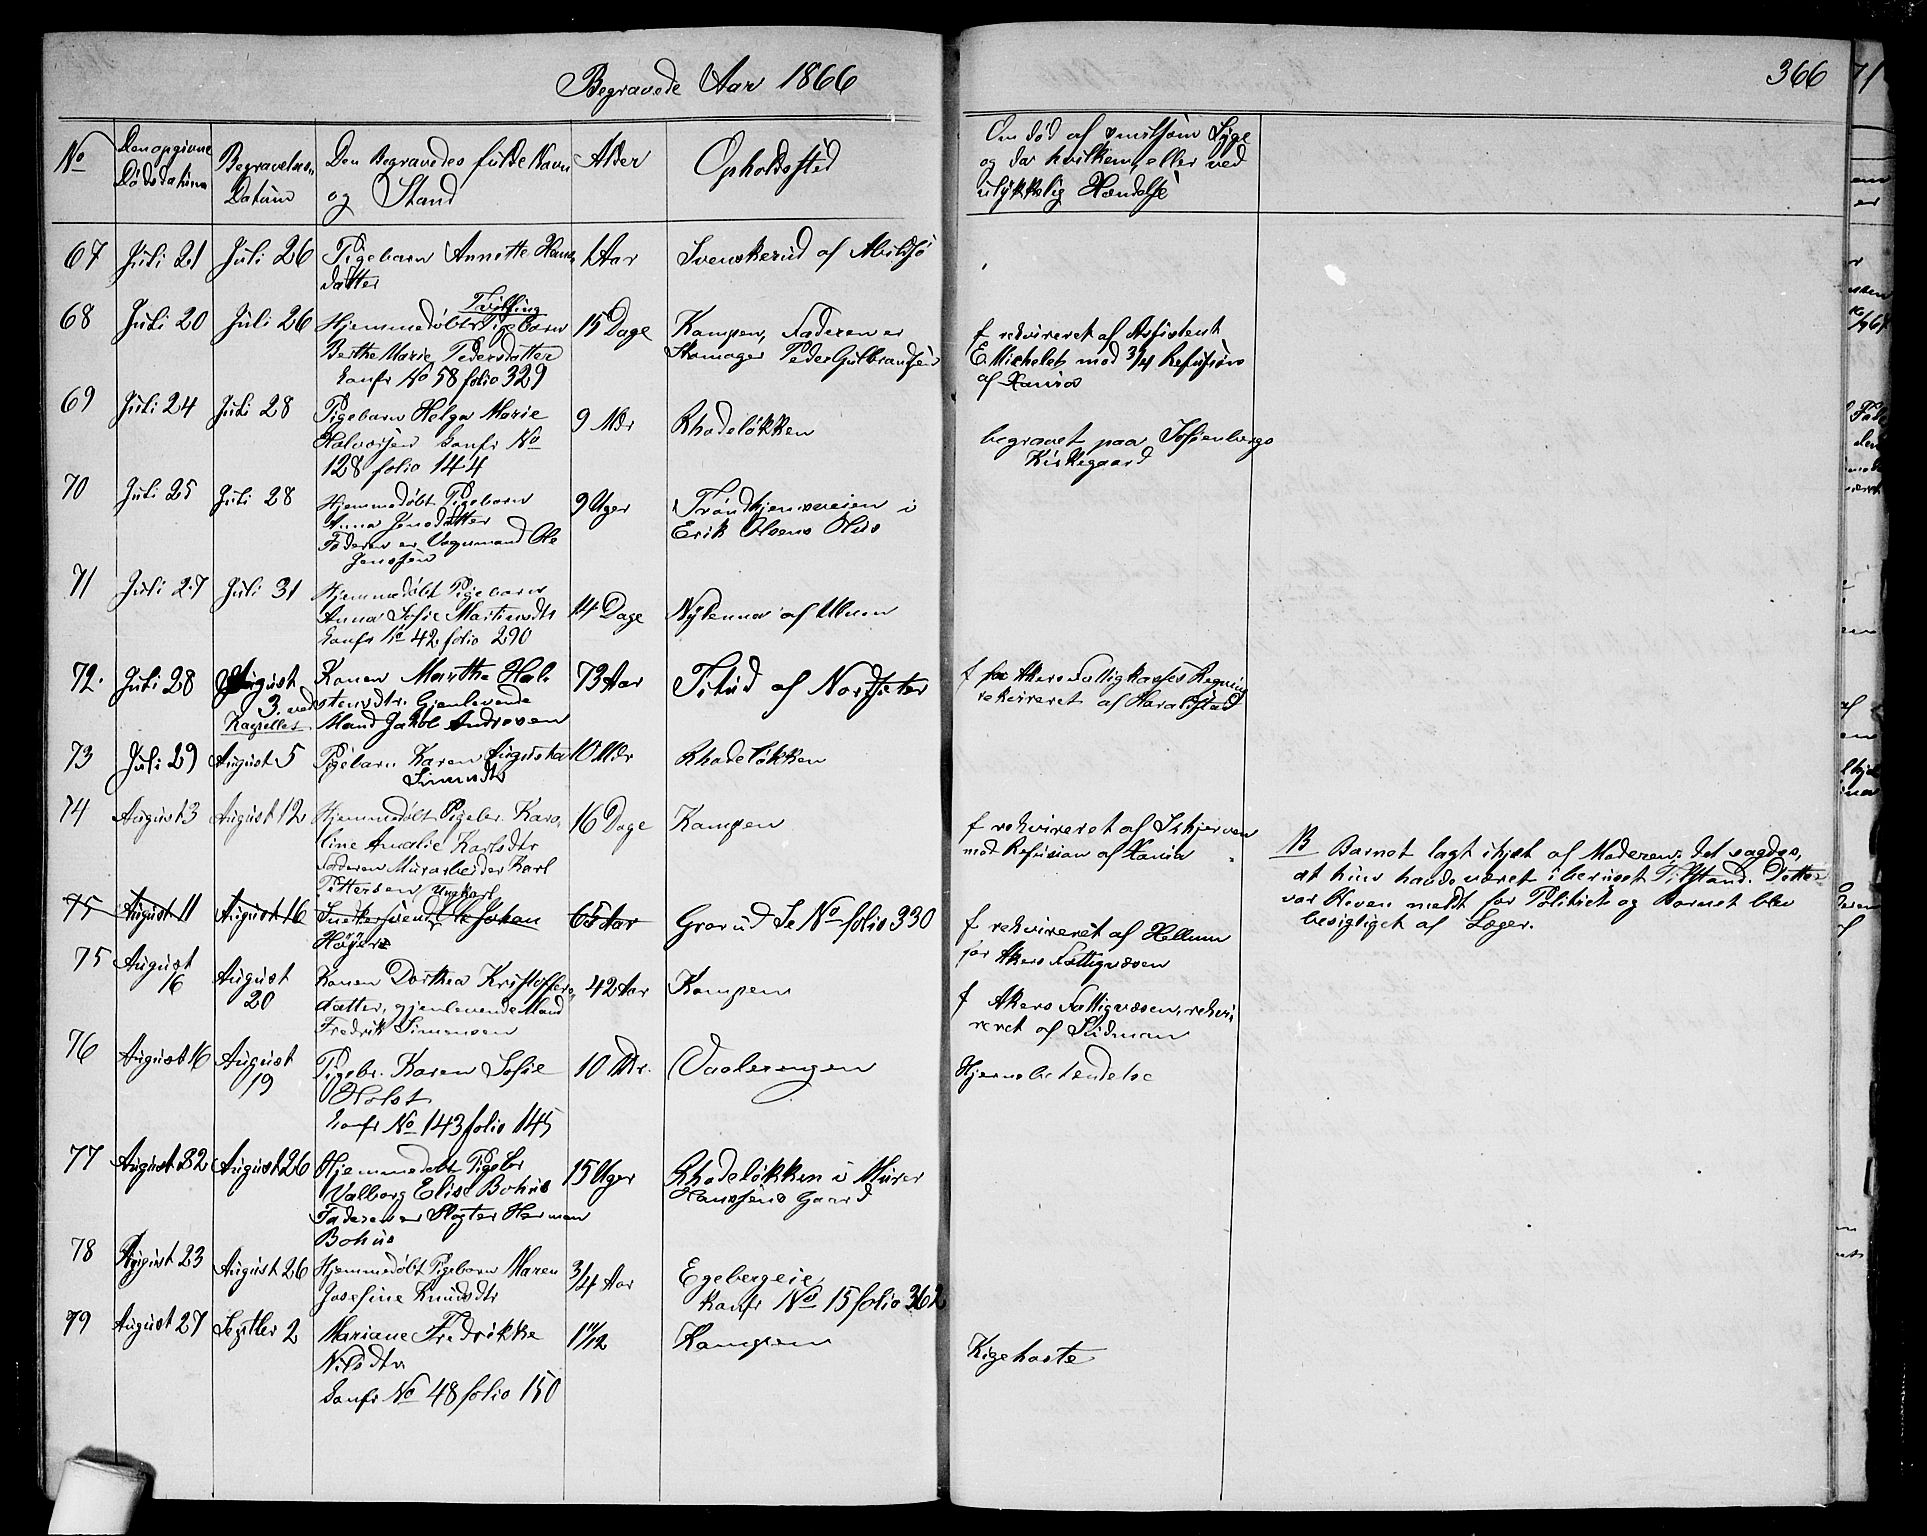 Begravede Aar 1866
366
No
Den opgivne Dødsdatum
Begravelses Datum
Den Begravedes fulde Navn og Stand
Alder
Opholdssted
Om død af smitsom Syge og da hvilken, eller ved ulykkelig Hændelse
67 Juli 21 Juli 26 Pigebarn Annette Hans
datter
1 Aar Svenskerud af
68 Juli 20 Juli 26 Tvilling
Hjemmedøbt Pigebarn
Berthe Marie Pedersdatter
Confr No 58 folio 329
15 Dage Kampen, Faderen er
Skomager Peder Gulbrandsen
f rekvireret af Assistent
E. Michelet mod 3/4 Refusion
af Xania
69 Juli 24 Juli 28 Pigebarn Helga Marie
Halvorsen Confr No
128 folio 144
9 Mdr Rhodeløkken
begravet paa Sofienbergs
Kirkegaard
70 Juli 25 Juli 28 Hjemmedøbt Pigebarn
Anna Jensdatter
Faderen er Vognmand Ole
Jenssen
9 Uger Trondhjemsveien i
Erik Olsens Hus
71 Juli 27 Juli 31 Hjemmedøbt Pigebarn
Anna Sofie Martinsdtr
Confr No 42 folio 290
14 Dage Nylenna af Ulven
72. Juli 28 August
3. ved
Kapellet
Konen Marthe Hal
stensdtr. Gjenlevende
Mand Jakob Andresen
73 Aar af Nordseter
f for Akers Fattigkasses Regning
rekvireret af Haralstad
73 Juli 29 August 5 Pigebarn Karen Augusta
Simensdtr
10 Mdr Rhodeløkken
74 August 3 August 12 Hjemmedøbt Pigebr. Karo
line Amalie Karlsdtr
Faderen Murarbeider Karl
Pettersen
16 Dage Kampen
f rekvireret af Schjerven
mod Refusion af Xania
NB Barnet lagt ihjel af Moderen; det sagdes,
at hun havde været i beruset Tilstand. Dette
var bleven meldt for Politiet og Barnet blev
besigtiget af Læger.
75 August 11 August 16 Ungkarl
Snekkersvend Ole Johan
65 Aar Grorud Se No folio 330
f rekvireret af Hellum
for Akers Fattigvæsen
75 August
16
August
20
Konen Dorthea Kristoffers
datter, gjenlevende Mand
Fredrik Simensen
42 Aar Kampen
f Akers Fattigvæsen, rekvi
reret af Stidman
76 August 16 August
19
Pigebr. Karen Sofie
Holst
Confr No 143 folio 145
10 Mdr. Vaalerengen
Hjernebetendelse
77 August 22 August 26 Hjemmedøbt Pigebr
Valborg Elise Bohus
Faderen er Slagter Herman
Bohus
15 Uger Rhodeløkken i Murer
Hanssens Gaard
78 August 23 August 26 Hjemmedøbt Pigebarn Maren
Josefine Knudsdtr
3/4 Aar Egebergeie
Konfr No 15 folio 362
79 August 27 Septbr 2 Mariane Fredrikke
Nilsdtr
Confr No 48 folio 150
1 11/12 Kampen
Kigehoste